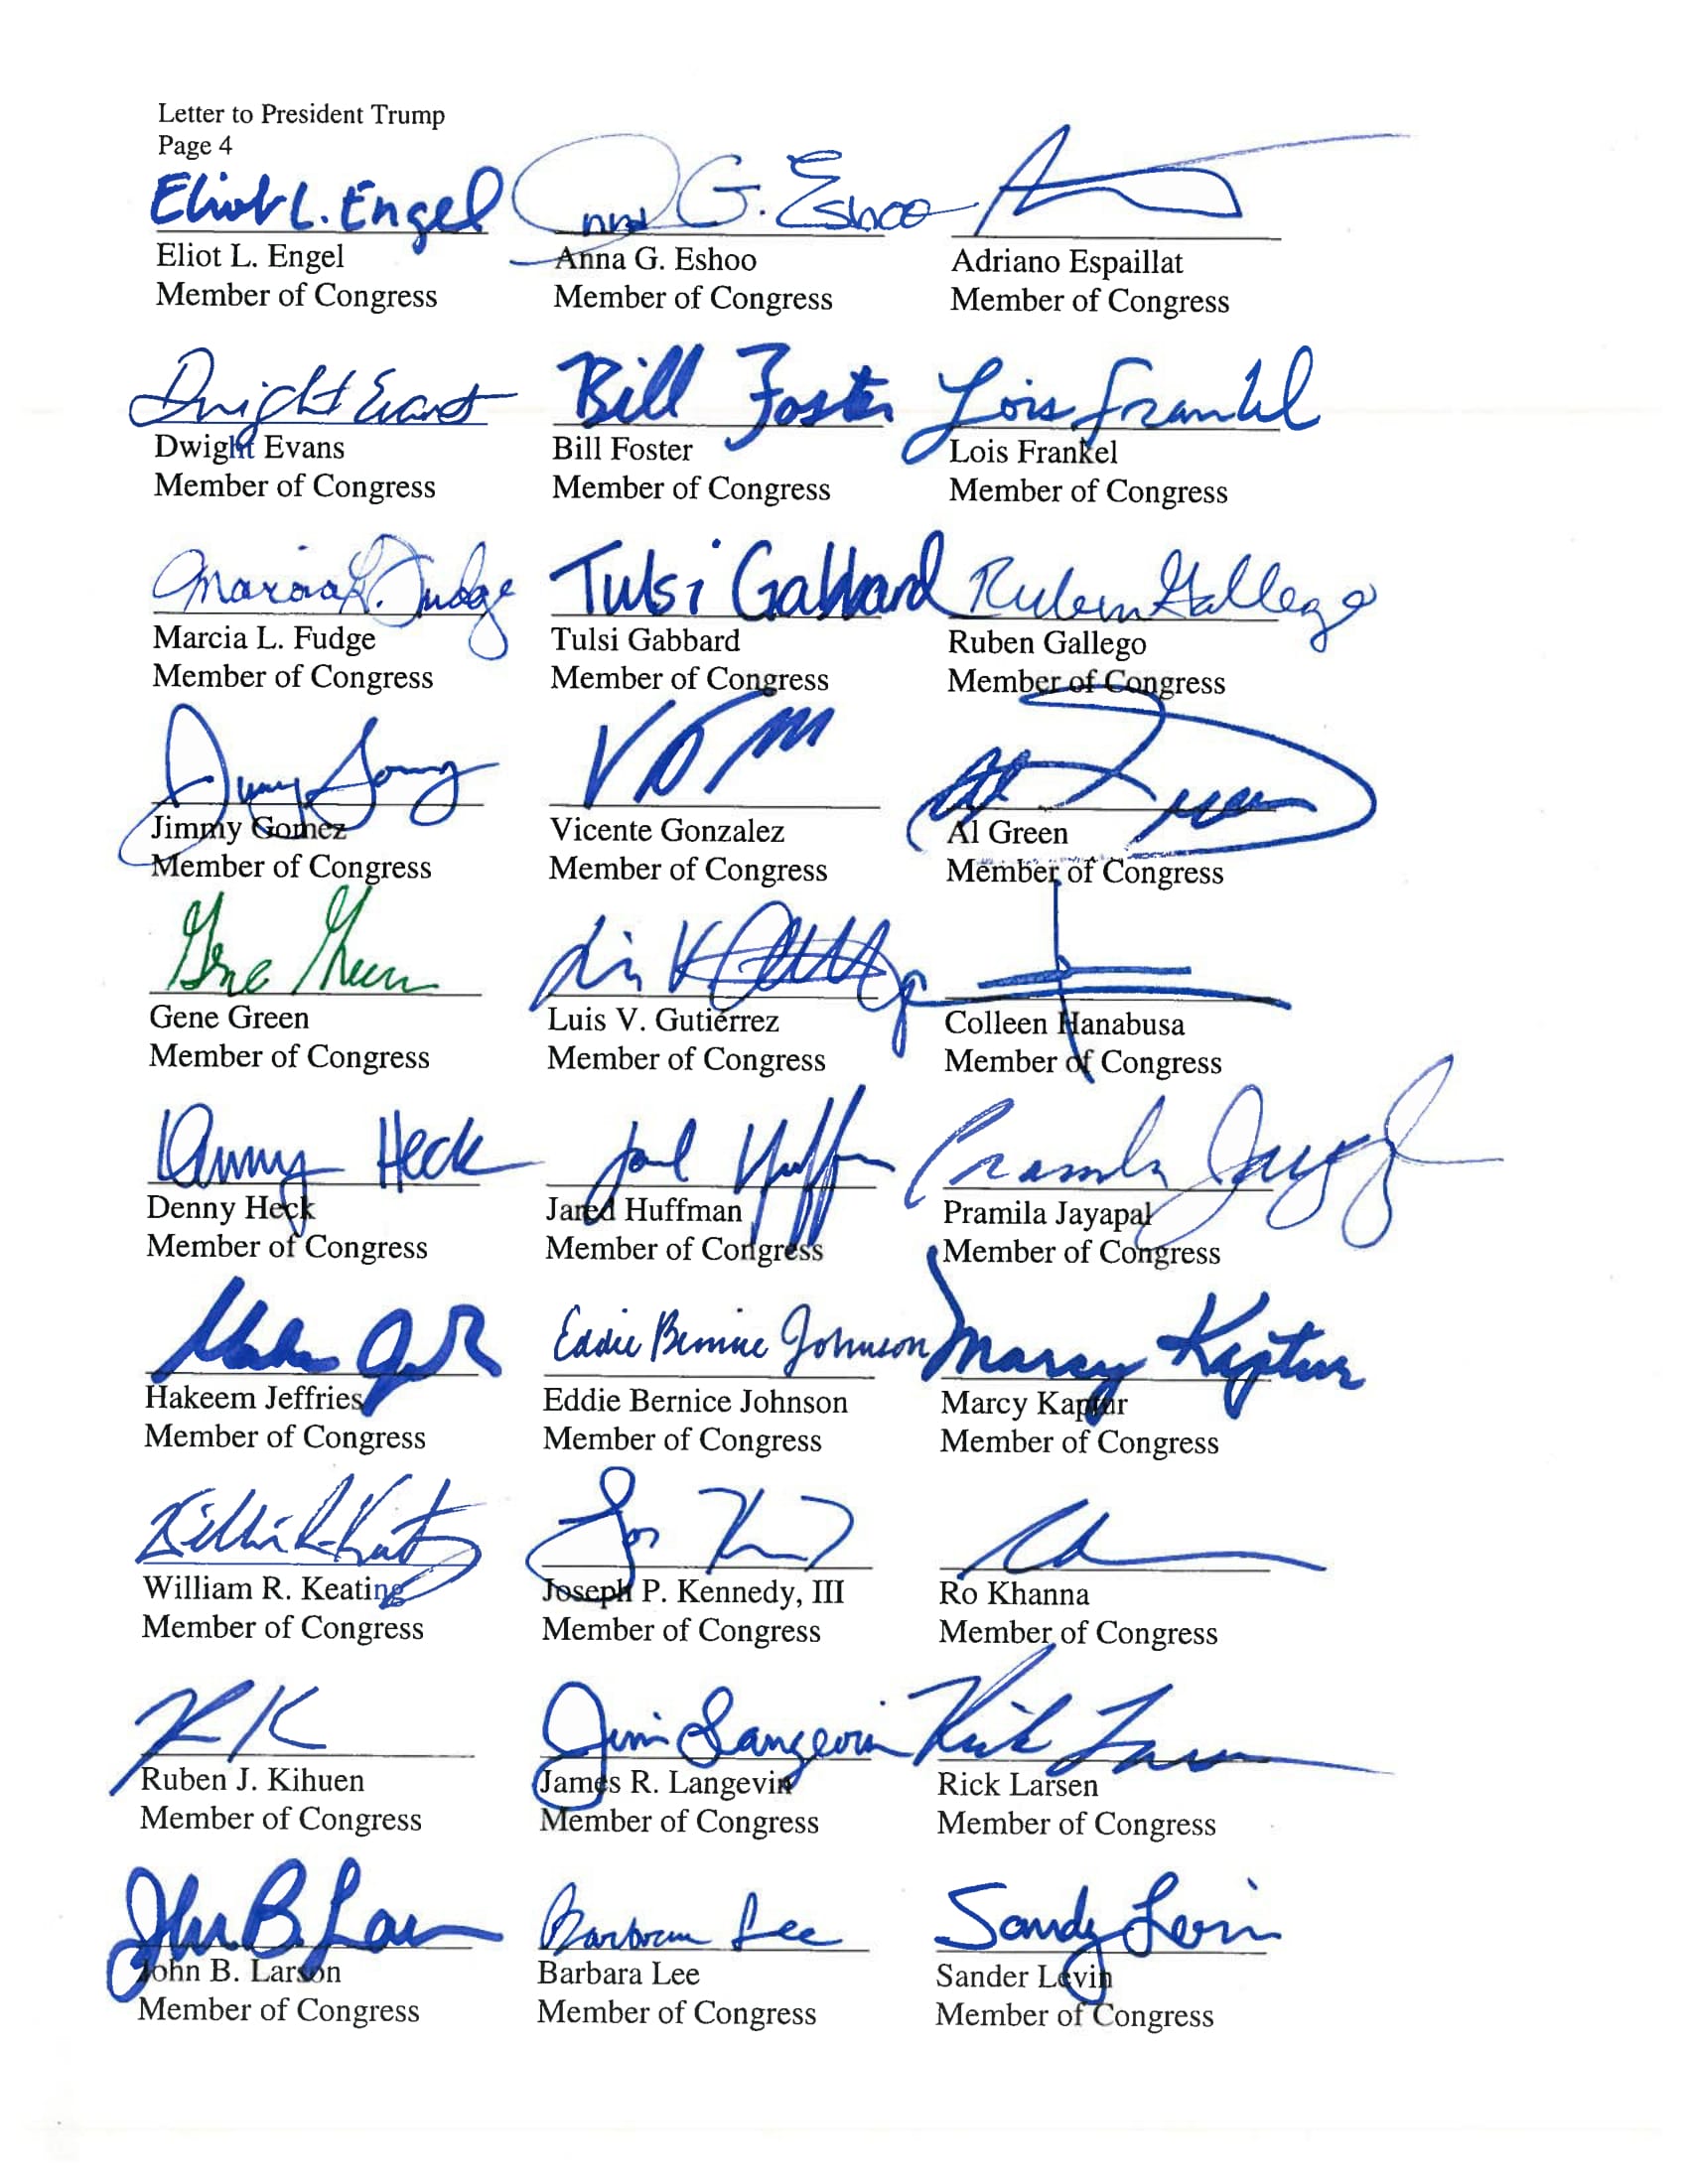 Letter to President Trump
Page 4
Eliot L. Engel Anna G. Eshoo
Eliot L. Engel Anna G. Eshoo Adriano Espaillat
Member of Congress Member of Congress Member of Congress
Dwight Evans Bill Foster Lois Frankel
Dwight Evans Bill Foster Lois Frankel
Member of Congress Member of Congress Member of Congress
Marcia L. Fudge Tulsi Gabbard Ruben Gallego
Marcia L. Fudge Tulsi Gabbard Ruben Gallego
Member of Congress Member of Congress Member of Congress
Jimmy Gomez Al Green
Jimmy Gomez Vicente Gonzalez Al Green
Member of Congress Member of Congress Member of Congress
Gene Green
Gene Green Luis V. Gutiérrez Colleen Hanabusa
Member of Congress Member of Congress Member of Congress
Denny Heck Jared Huffman Pramila Jayapal
Denny Heck Jared Huffman Pramila Jayapal
Member of Congress Member of Congress Member of Congress
Eddie Bernice Johnson Marcy Kaptur
Hakeem Jeffries Eddie Bernice Johnson Marcy Kaptur
Member of Congress Member of Congress Member of Congress
William R. Keating Joe
William R. Keating Joseph P. Kennedy, III Ro Khanna
Member of Congress Member of Congress Member of Congress
Jim Langevin Rick Larsen
Ruben J. Kihuen James R. Langevin Rick Larsen
Member of Congress Member of Congress Member of Congress
John B. Larson Barbara Lee Sandy Levin
John B. Larson Barbara Lee Sander Levin
Member of Congress Member of Congress Member of Congress